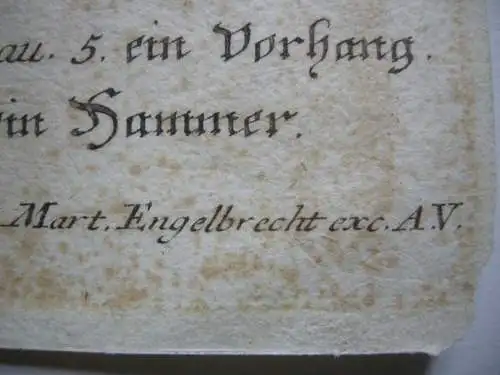 au. 5. ein Vorhang.
in Hammer.
Mart. Engelbrecht exc. A.V.